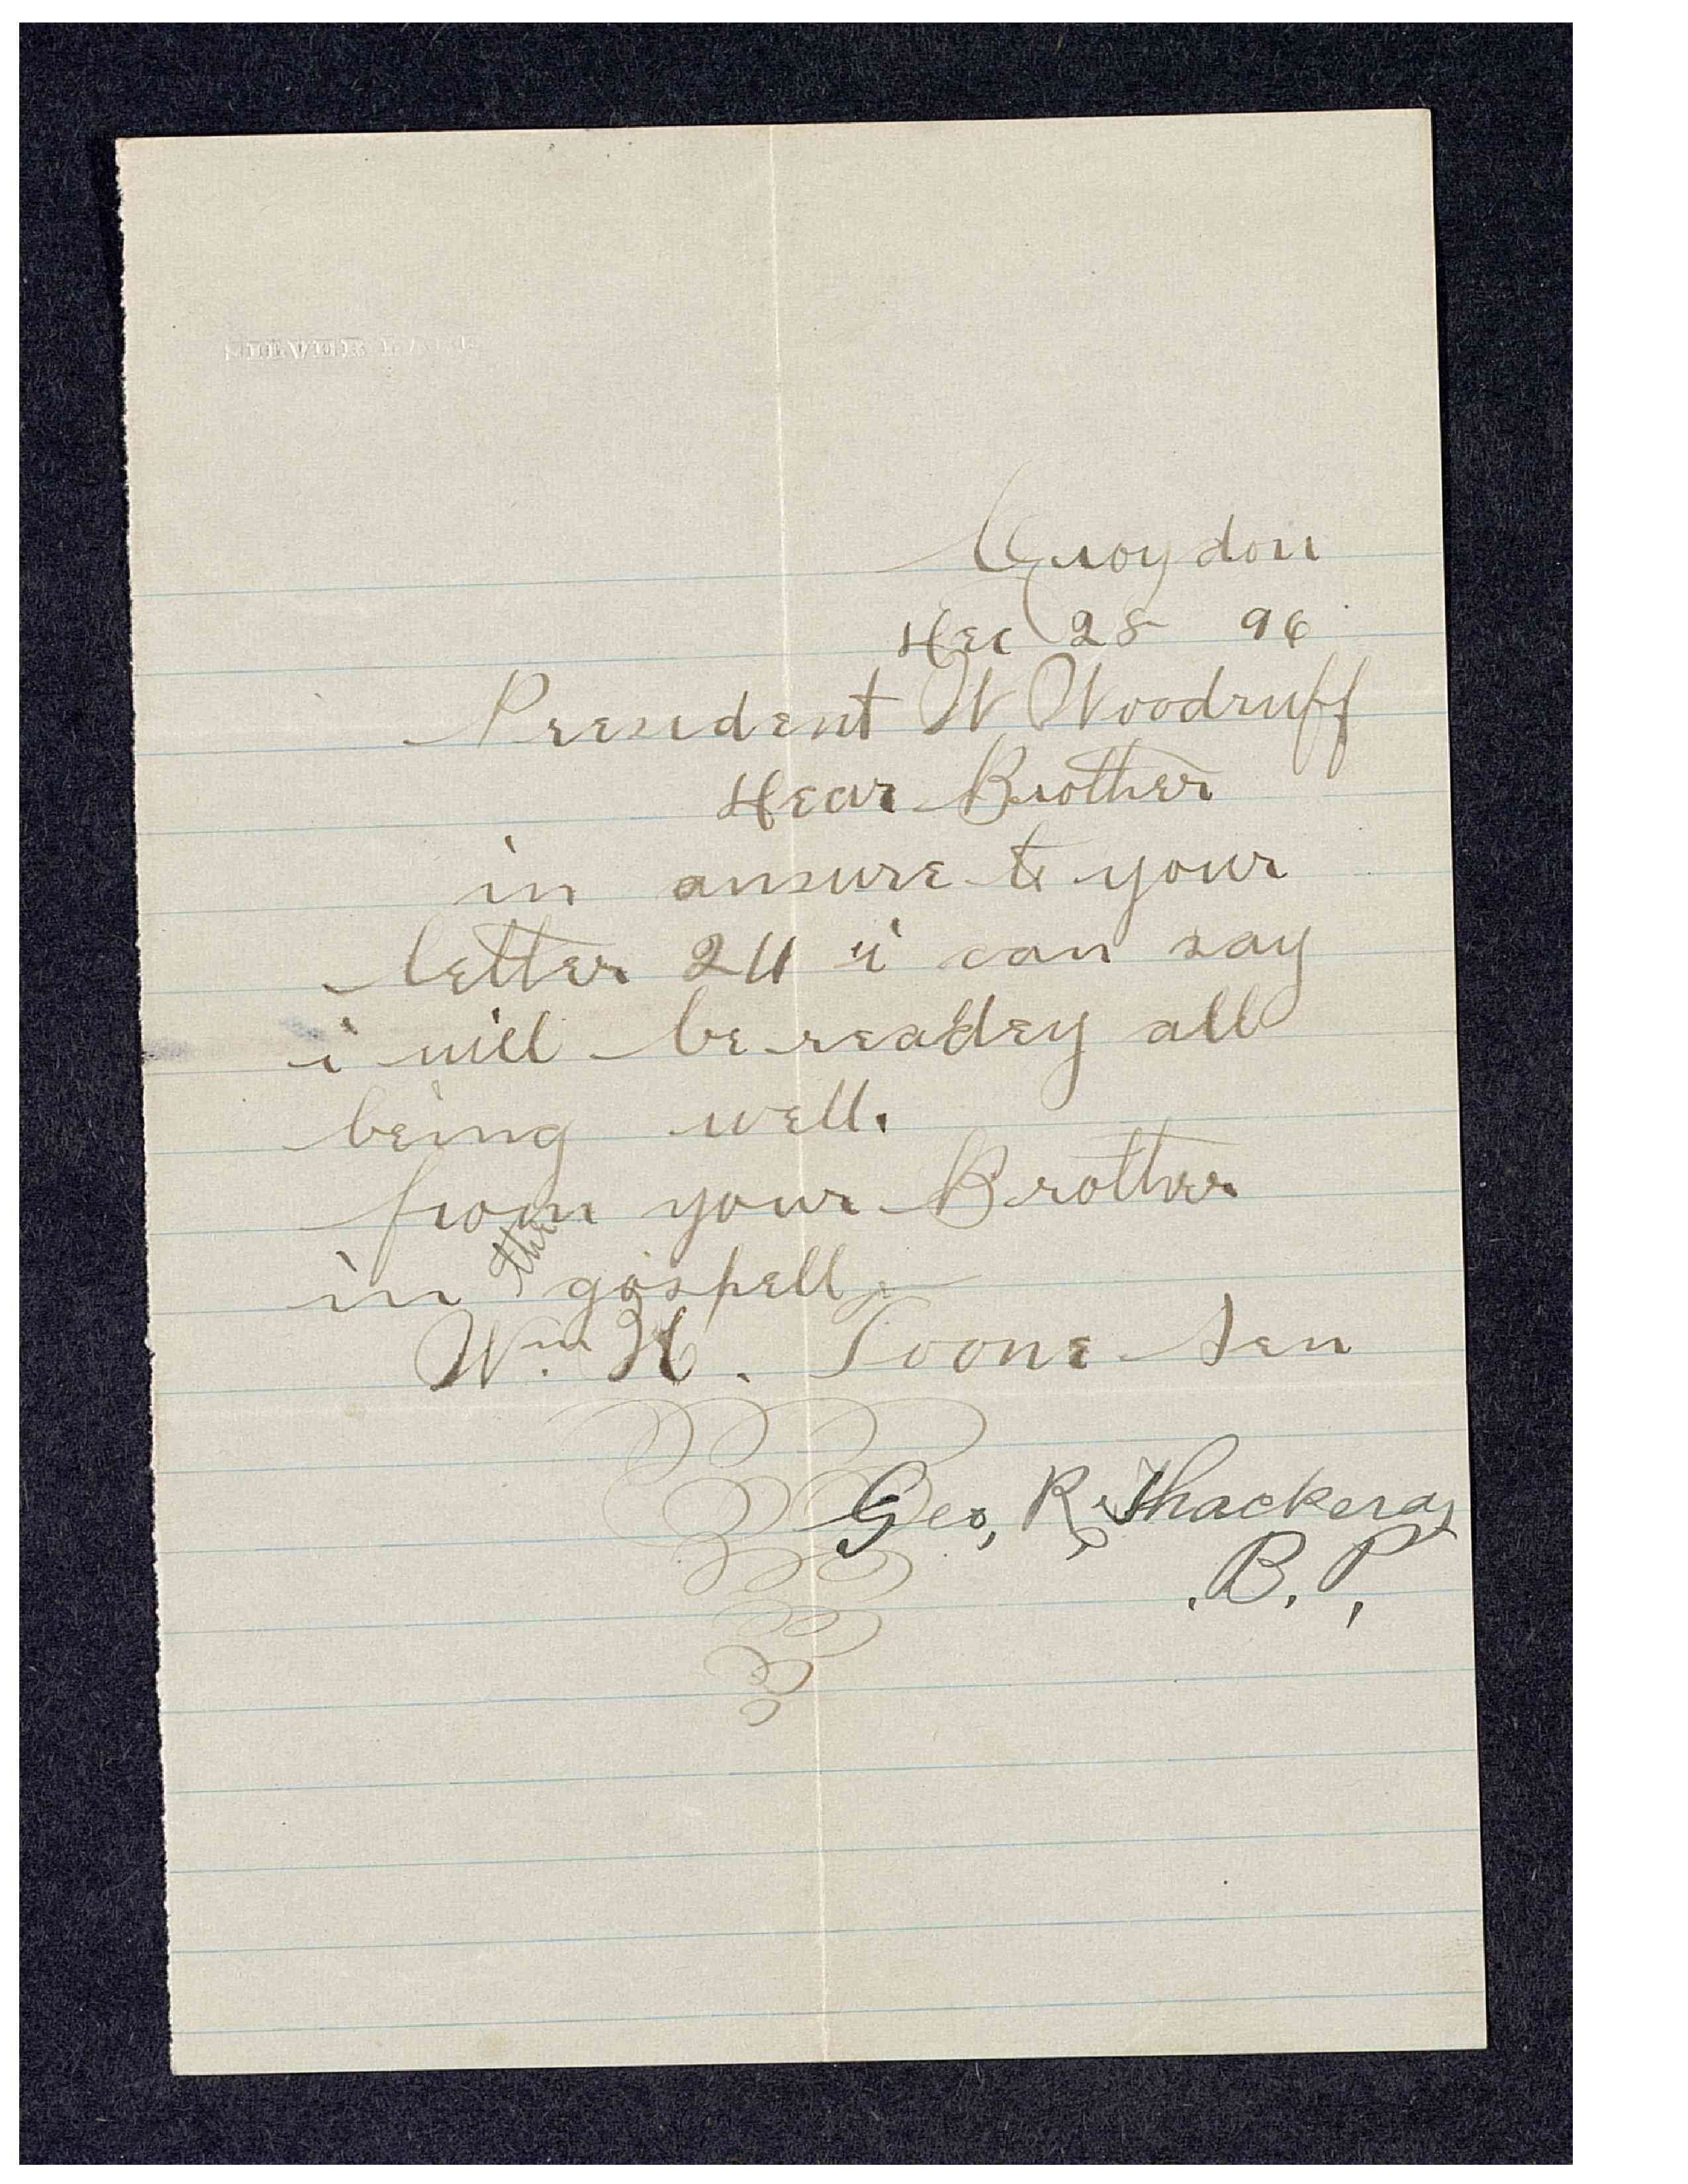 Croydon
Dec 28 96
President W Woodruff
Dear Brother
in ansure to your
letter 24 i can say
i will be readey all
being well.
from your Brother
in the gospell
Wm. H. Toone Sen
Geo, R. Thackeray
.B. P,